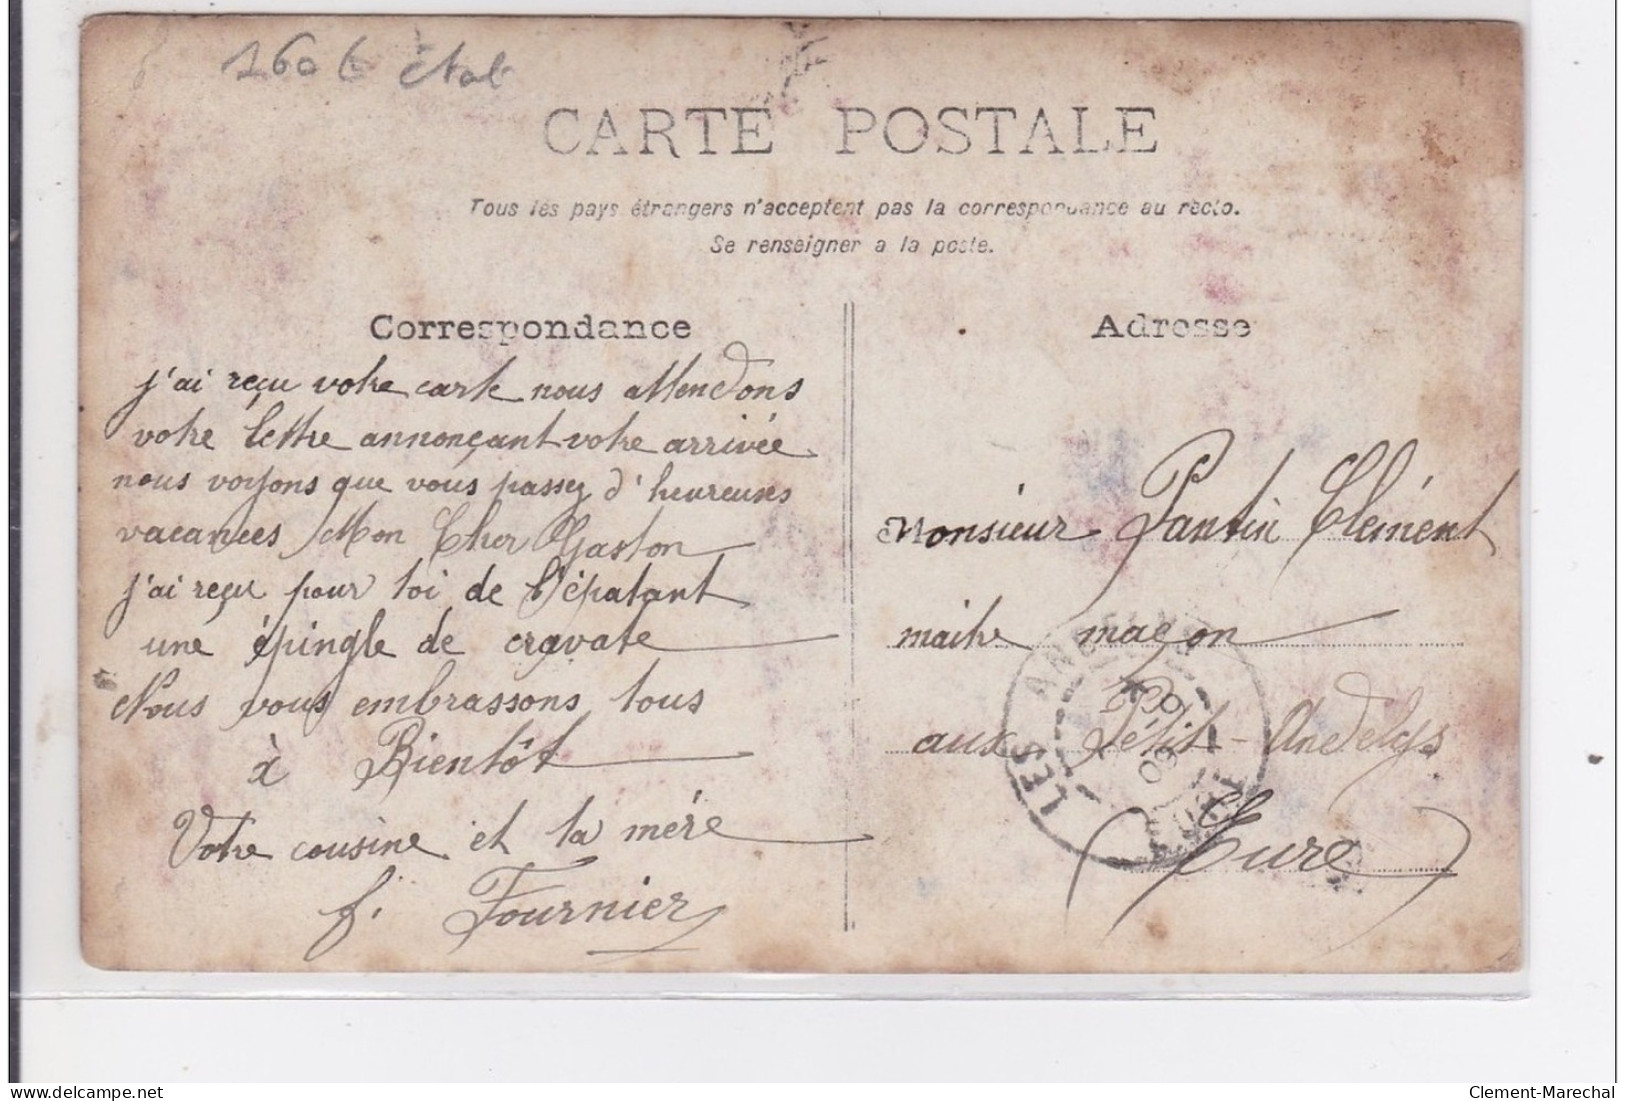 160 €
CARTE POSTALE
Tous les pays étrangers n'acceptent pas la correspondance au recto.
Se renseigner a la poste.
Correspondance
j'ai reçu votre carte nous attendons
votre lettre annonçant votre arrivée
nous voyons que vous passez d'heureuses
vacances Mon Cher Gaston
j'ai reçu pour toi de l'épatant
une épingle de cravate
Nous vous embrassons tous
à Bientôt
Votre cousine et ta mère
f. Fournier
Adresse
Monsieur Pantin Clément
maitre maçon
aux Petit-Andelys
(Eure)
LES ANDELYS
09
delcampe.net
Clement-Marechal